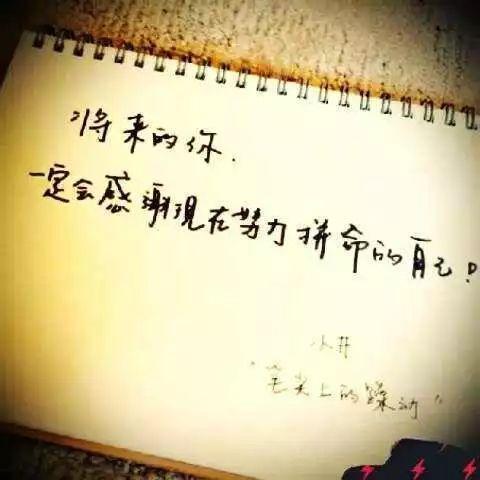 将来的你.
一定会感谢现在努力拼命的自己!
小井
"笔尖上的躁动"